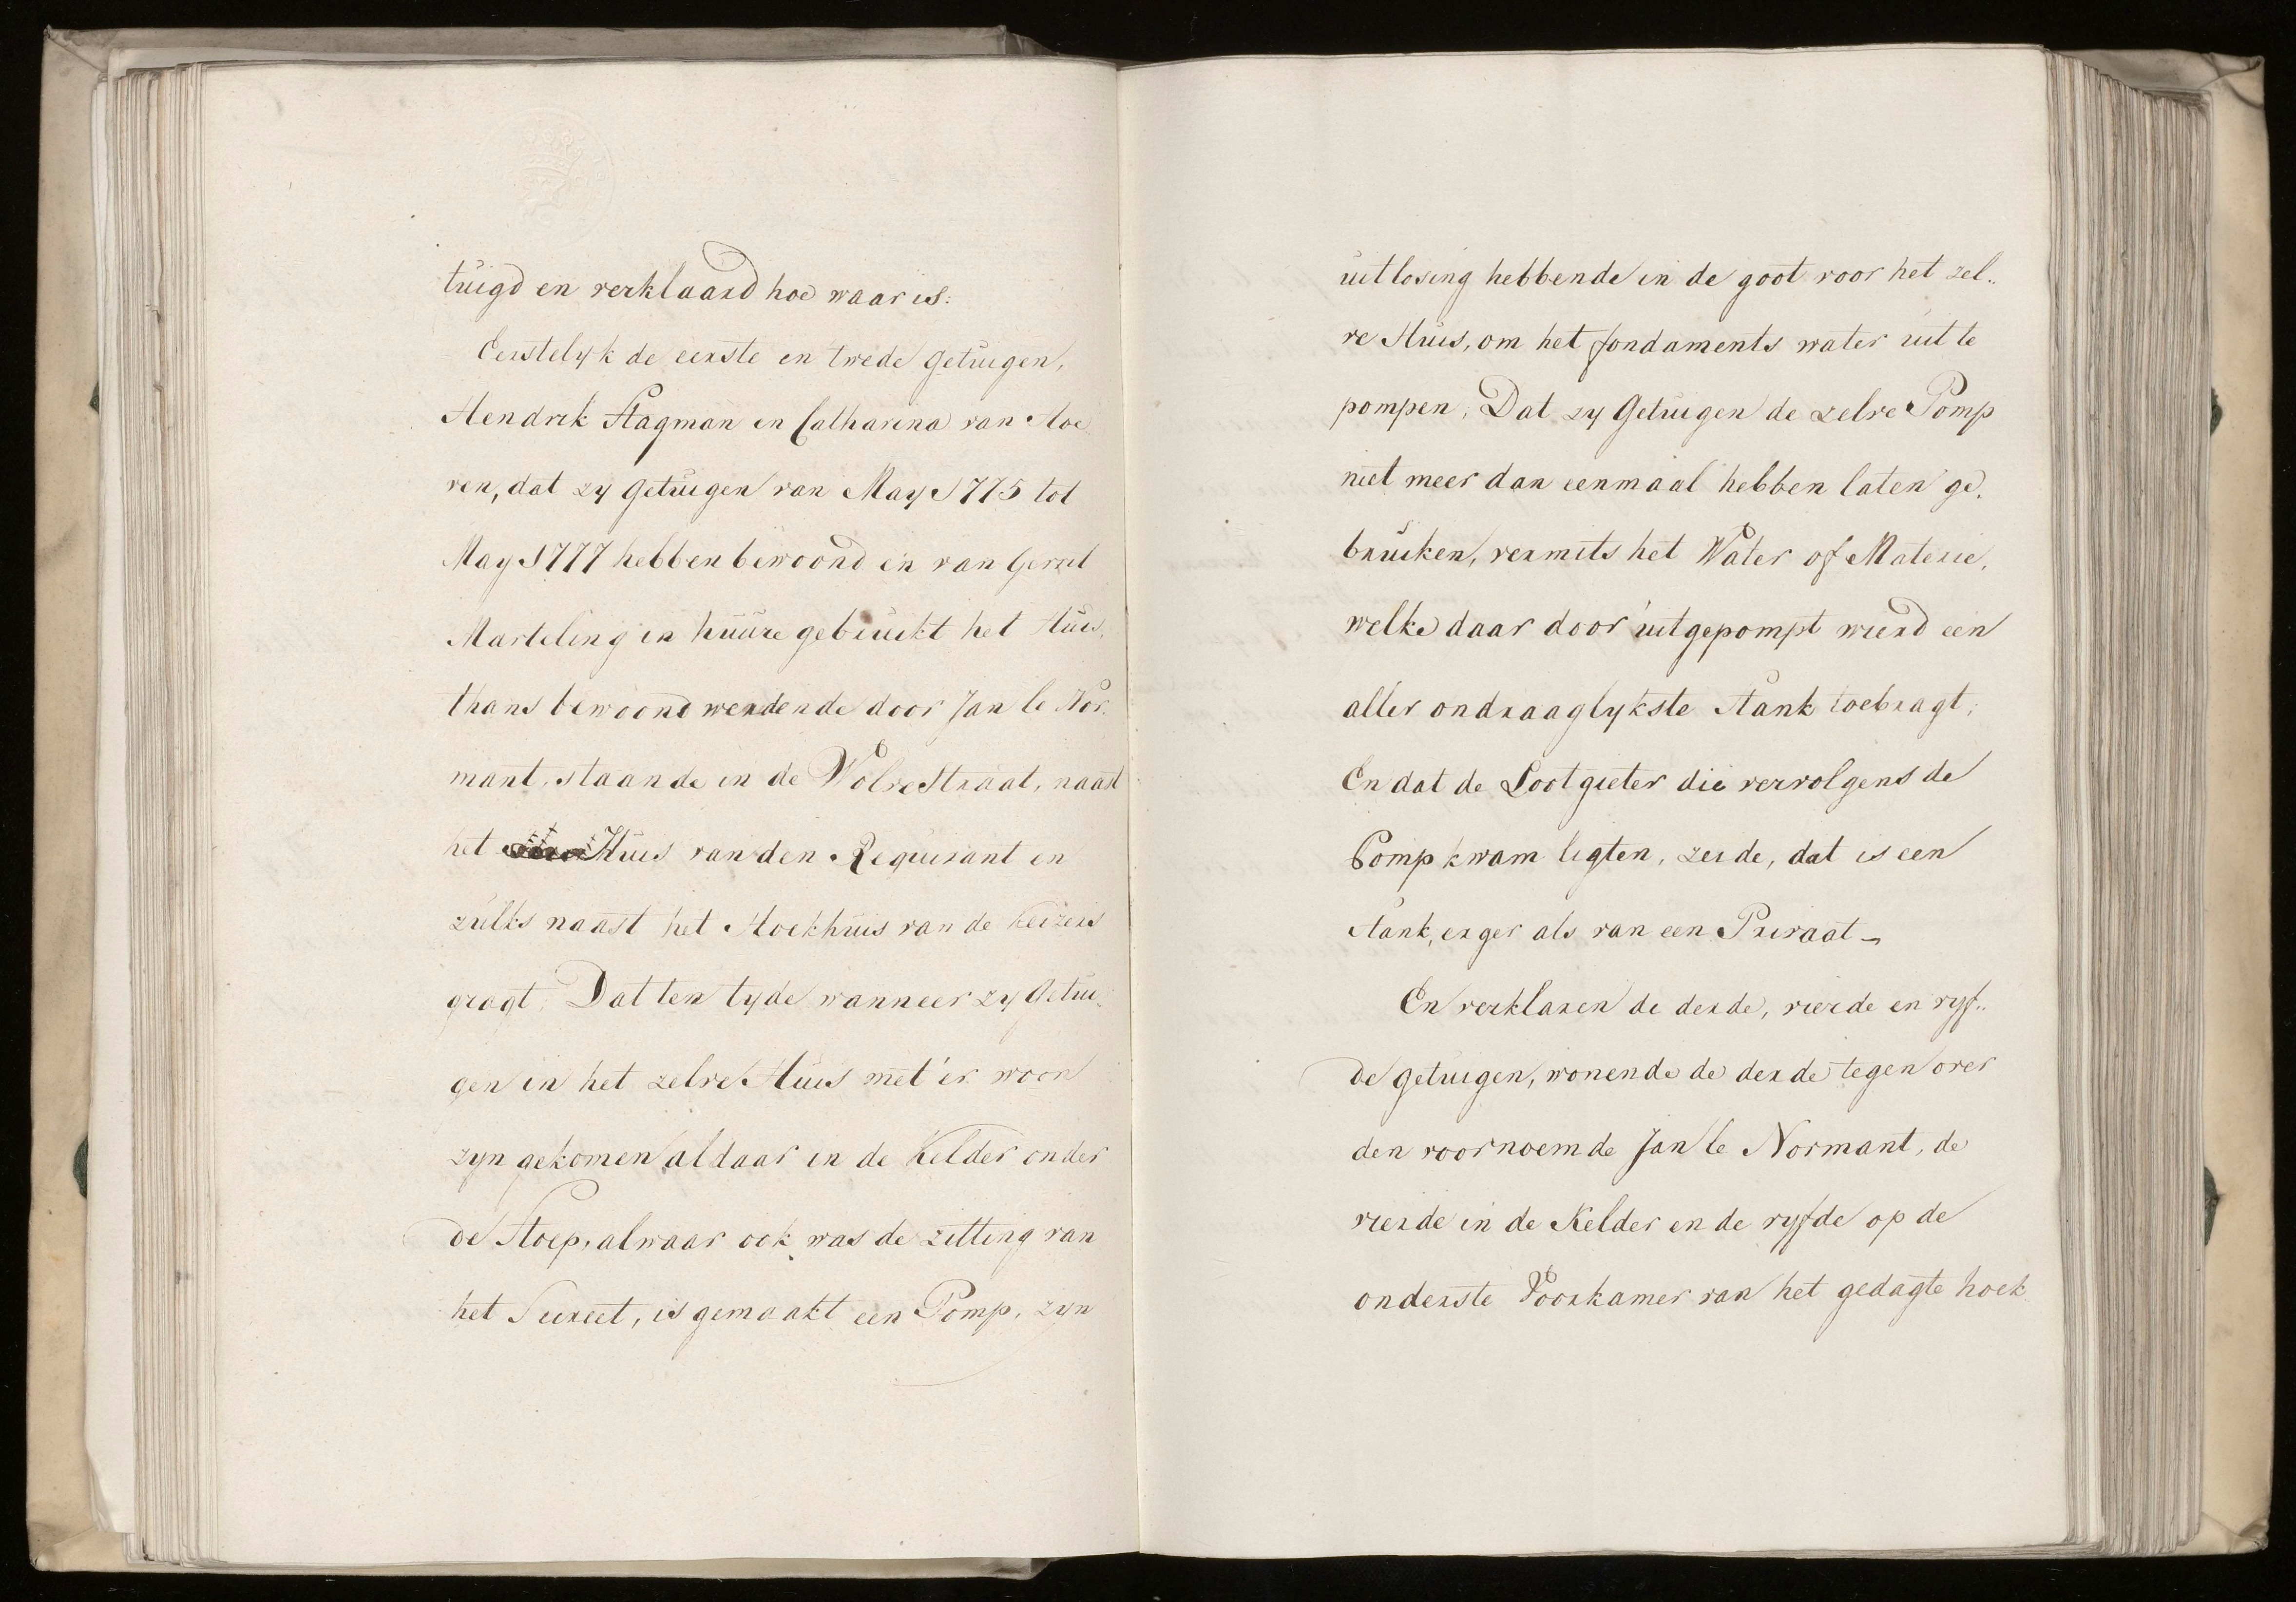 tuigd en verklaard hoe waar is:
Eerstelyk de eerste en twede getuigen,
Hendrik Stagman en Catharina van Hoe
ven, dat zy getuigen van May 1775 tot
May 1777 hebben bewoond en van Gerrit
Marteling in huure gebruikt het Huis,
thans bewoond werdende door Jan le Nor.
mant, staande in de Wolvestraat, naast
het Huis van den Requirant en
zulks naast het Hoekhuis van de Keizers
gragt; Dat ten tyde wanneer zy Getui.
gen in het zelve Huis met 'er woon
zyn gekomen aldaar in de Kelder onder
de Stoep, alwaar ook was de zitting van
het Sucreet, is gemaakt een Pomp, zyn
uitlosing hebbende in de goot voor het zel..
ve Huis, om het fondaments water uit te
pompen; Dat zy Getuigen de zelve Pomp
niet meer dan eenmaal hebben laten ge.
bruiken, vermits het Water of Materie,
welke daar door uitgepompt wierd een
aller ondraaglykste stank toebragt;
En dat de Lootgieter die vervolgens de
Pomp kwam ligten, zeide, dat is een
stank, erger als van een Privaat –
En verklaren de derde, vierde en vyf..
de getuigen, wonende de derde tegen over
den voornoemde Jan le Normant, de
vierde in de Kelder en de vyfde op de
onderste Voorkamer van het gedagte hoek